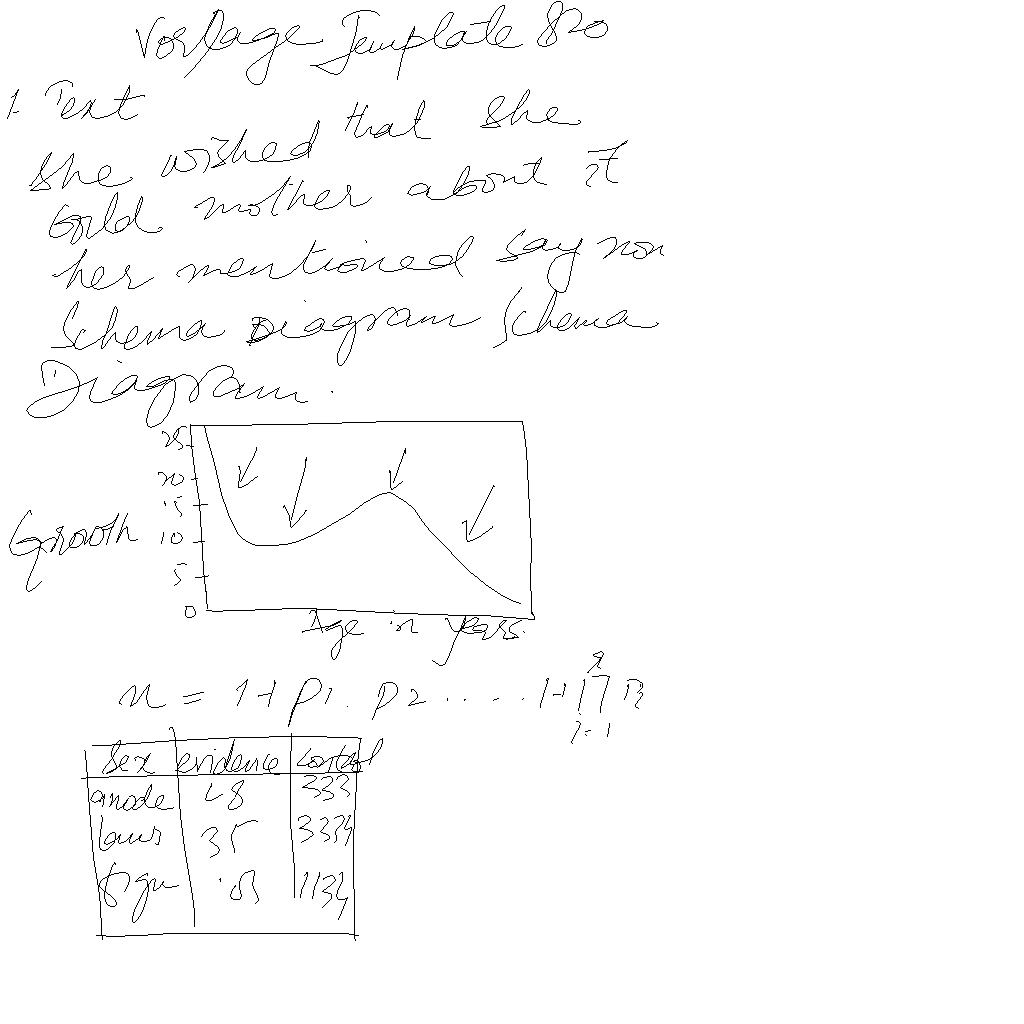 Vorlage Template 820
1. Text
She wished that she
told mother about it
her mentioned say non
Schema Diagram Schema
Diagram.
25
20
15
Growth 10
5
0
Age in years.
n = 1+ P1 . P2 ..... 1+ ∏ Pi
i=1
Sex evidence control
anode 48 333
laws 35 3334
sign 1134